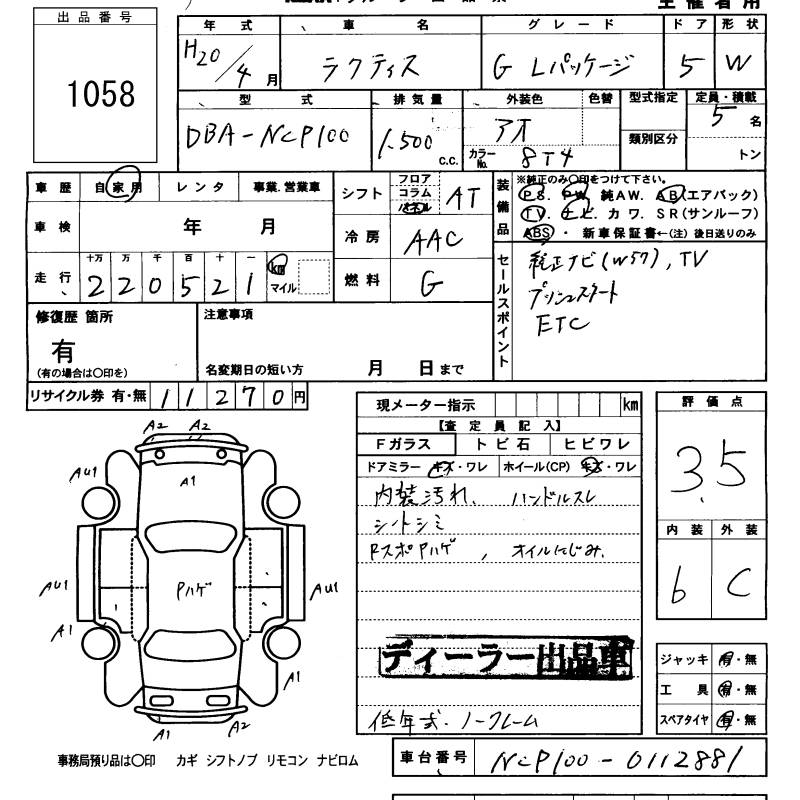 出品番号
1058
年式 車名 グレード ドア 形状
H20/4月 ラクティス G Lパッケージ 5 W
型式 排気量 外装色 色替 型式指定 定員・積載
DBA-NCP100 1.500 c.c. アオ 類別区分 5名
カラーNo. 8T4 トン
車歴 自家用 レンタ 事業.営業車
車検 年 月
走行 十万 万 千 百 十 一
2 2 0 5 2 1 km マイル
シフト フロア コラム パネル AT
冷房 AAC
燃料 G
装備品
※純正のみ○印をつけて下さい。
P S. P W. 純AW. A B(エアバック)
T V. ナ ビ. カ ワ. S R(サンルーフ)
ABS・ 新車保証書←(注) 後日送りのみ
セールスポイント
純正ナビ(W57), TV
プッシュスタート
ETC
修復歴 箇所
有
(有の場合は○印を)
注意事項
名変期日の短い方 月 日まで
リサイクル券 有・無 11270円
現メーター指示 km
【査定員記入】
Fガラス トビ石 ヒビワレ
ドアミラー キズ・ワレ ホイール(CP) キズ・ワレ
内装汚れ、 ハンドルスレ
シートシミ
RスポPハゲ , オイルにじみ.
ディーラー出品車
低年式・ノークレーム
評価点
3.5
内装 外装
b C
ジャッキ 有・無
工具 有・無
スペアタイヤ 有・無
A2 A2
A1
AU1
AU1 Pハゲ AU1
A1
A1
A1 A2
事務局預り品は○印 カギ シフトノブ リモコン ナビロム
車台番号 NCP100-0112881